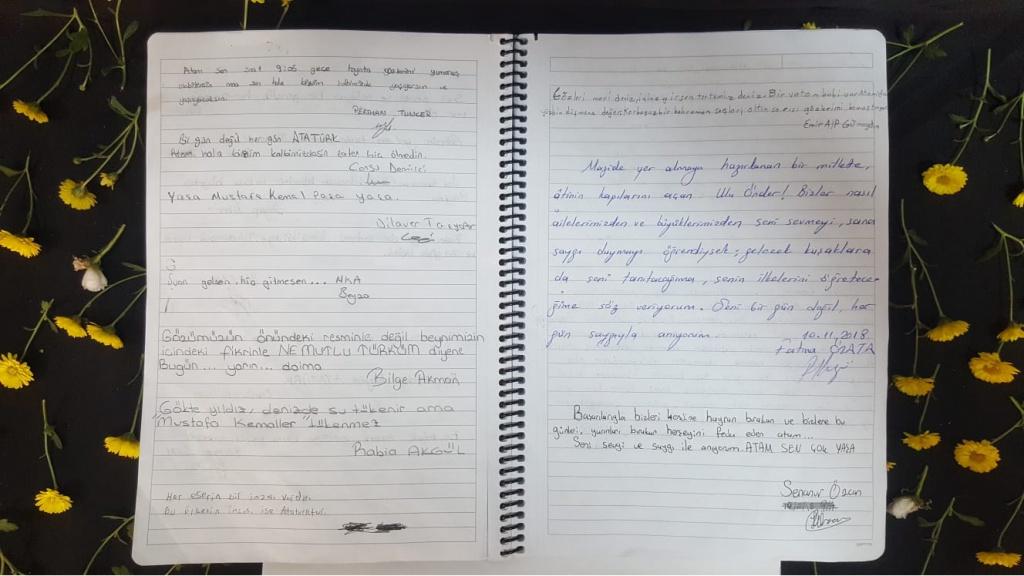 Atam sen saat 9:05 geçe hayata gözlerini yummuş
olabilirsin ama sen hala bizim kalbimizde yaşıyorsun ve
yaşayacaksın.
PERİHAN TUNCER
Bir gün değil her gün ATATÜRK
Atam hala bizim kalbimizdesin zaten hiç ölmedin.
Cansu Demirci
Yaşa Mustafa Kemal Paşa yaşa.
Dilaver
gelsen hiç gitmesen... 
Beyza
Gözümüzün önündeki resminle değil beynimizin
içindeki fikrinle NE MUTLU TÜRKÜM diyene
Bugün... yarın... daima
Bilge Akman
Gökte yıldız, denizde su tükenir ama
Mustafa Kemaller Tükenmez
Rabia AKGÜL
Her eserin bir imzası vardır.
Bu ülkenin imzası ise Atatürktür.
Gözleri mavi deniz, içine girsen tertemiz deniz. Bir vatan
değer. Korkusuz bir kahraman saçları, altın sarısı gözlerimi kamaştırıyor
Emir Alp
Mazide yer almaya hazırlanan bir millete,
âtinin kapılarını açan Ulu Önder! Bizler nasıl
ailelerimizden ve büyüklerimizden seni sevmeyi, sana
saygı duymayı öğrendiysek; gelecek kuşaklara
da seni tanıtacağıma, senin ilkelerini öğretece-
ğime söz veriyorum. Seni bir gün değil, her
gün saygıyla anıyorum.
10.11.2018
Fatma ÖZATA
Başarılarıyla bizleri kendine hayran bırakan ve bizlere bu
günleri, yarınları bırakan herşeyini feda eden atam...
Seni sevgi ve saygı ile anıyorum ATAM SEN ÇOK YAŞA
Senanur Özcan